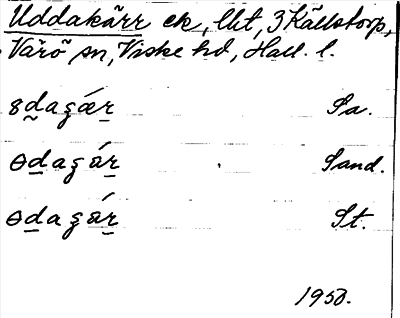 Uddakärr ek, lht, 3 Källstorp,
Värö sn, Viske hd, Hall. l.
Sa.
ɵdagár Sand.
ɵdagár St.
1950.